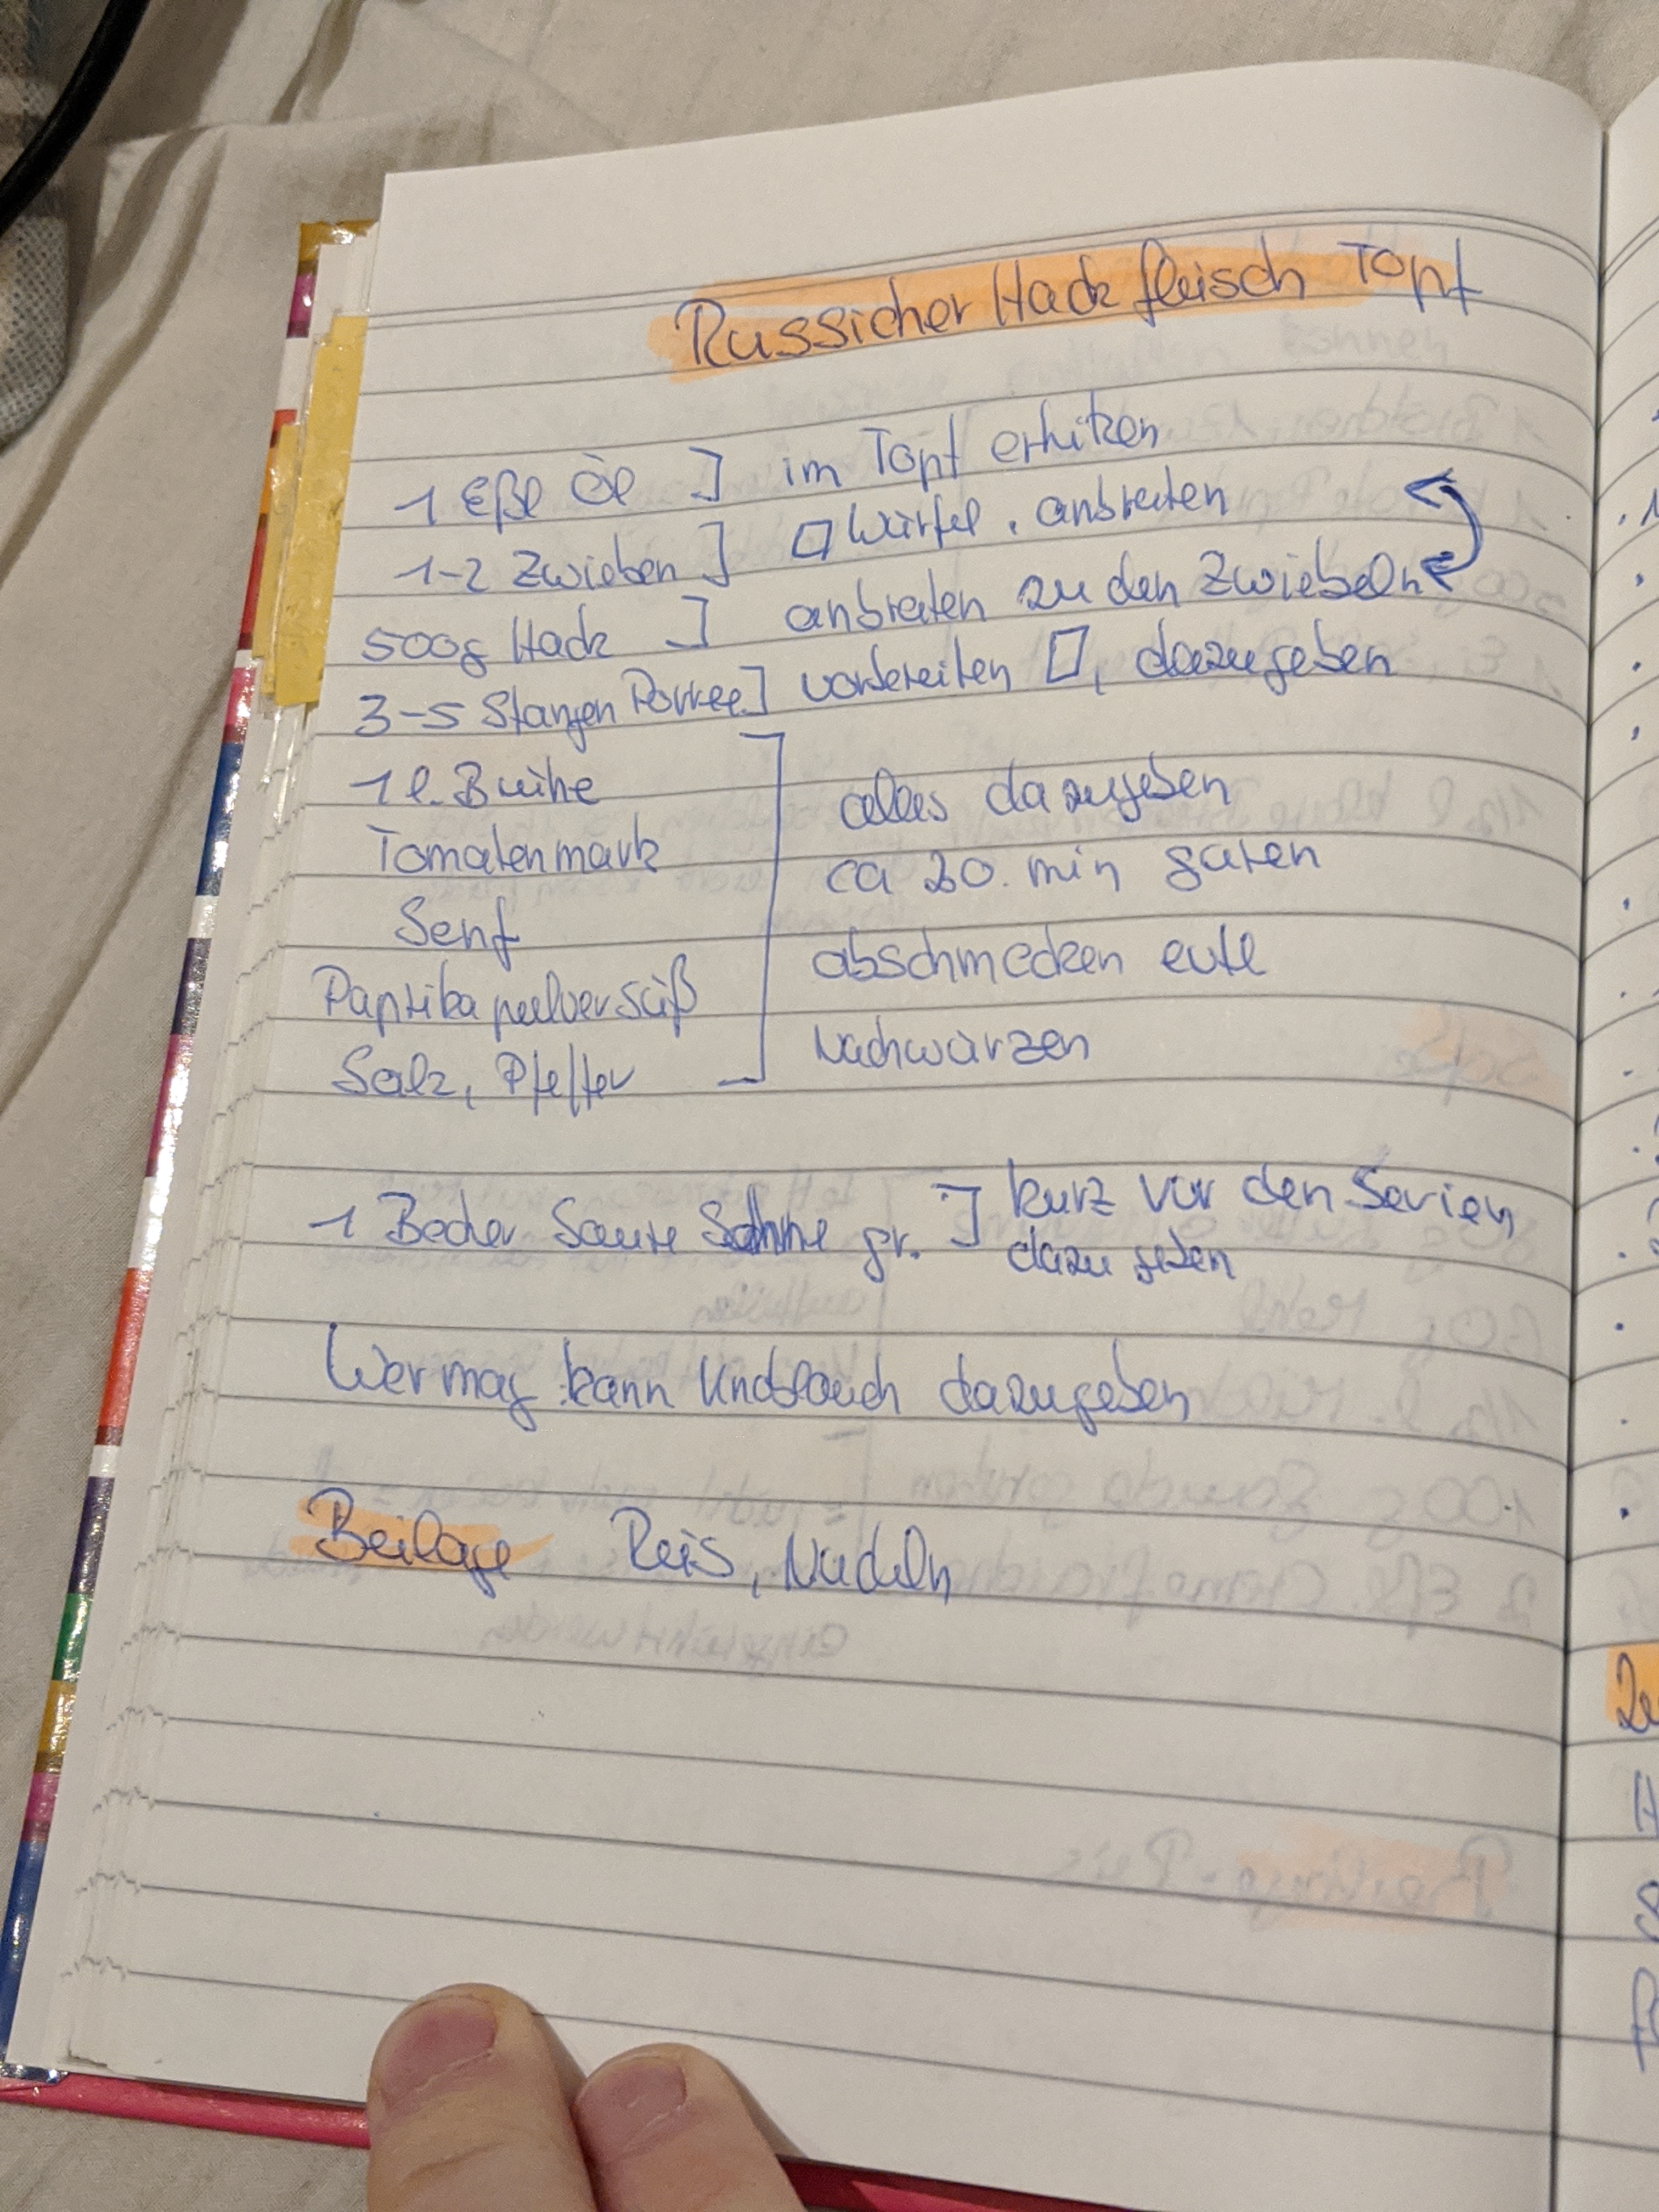 Russicher Hackfleisch Topf
1 Eßl Öl ] im Topf erhitzen
1-2 Zwieben ] Würfel, anbraten
500g Hack ] anbraten zu den Zwiebeln
3-5 Stangen Porree ] vorbereiten, dazugeben
1 l. Brühe
Tomatenmark
Senf
Paprikapulver süß
Salz, Pfeffer
alles dazugeben
ca 20. min garen
abschmecken evtl
nachwürzen
1 Becher Saure Sahne gr. ] kurz vor den Servien
dazu geben
Wer mag kann Knoblauch dazugeben
Beilage Reis, Nudeln